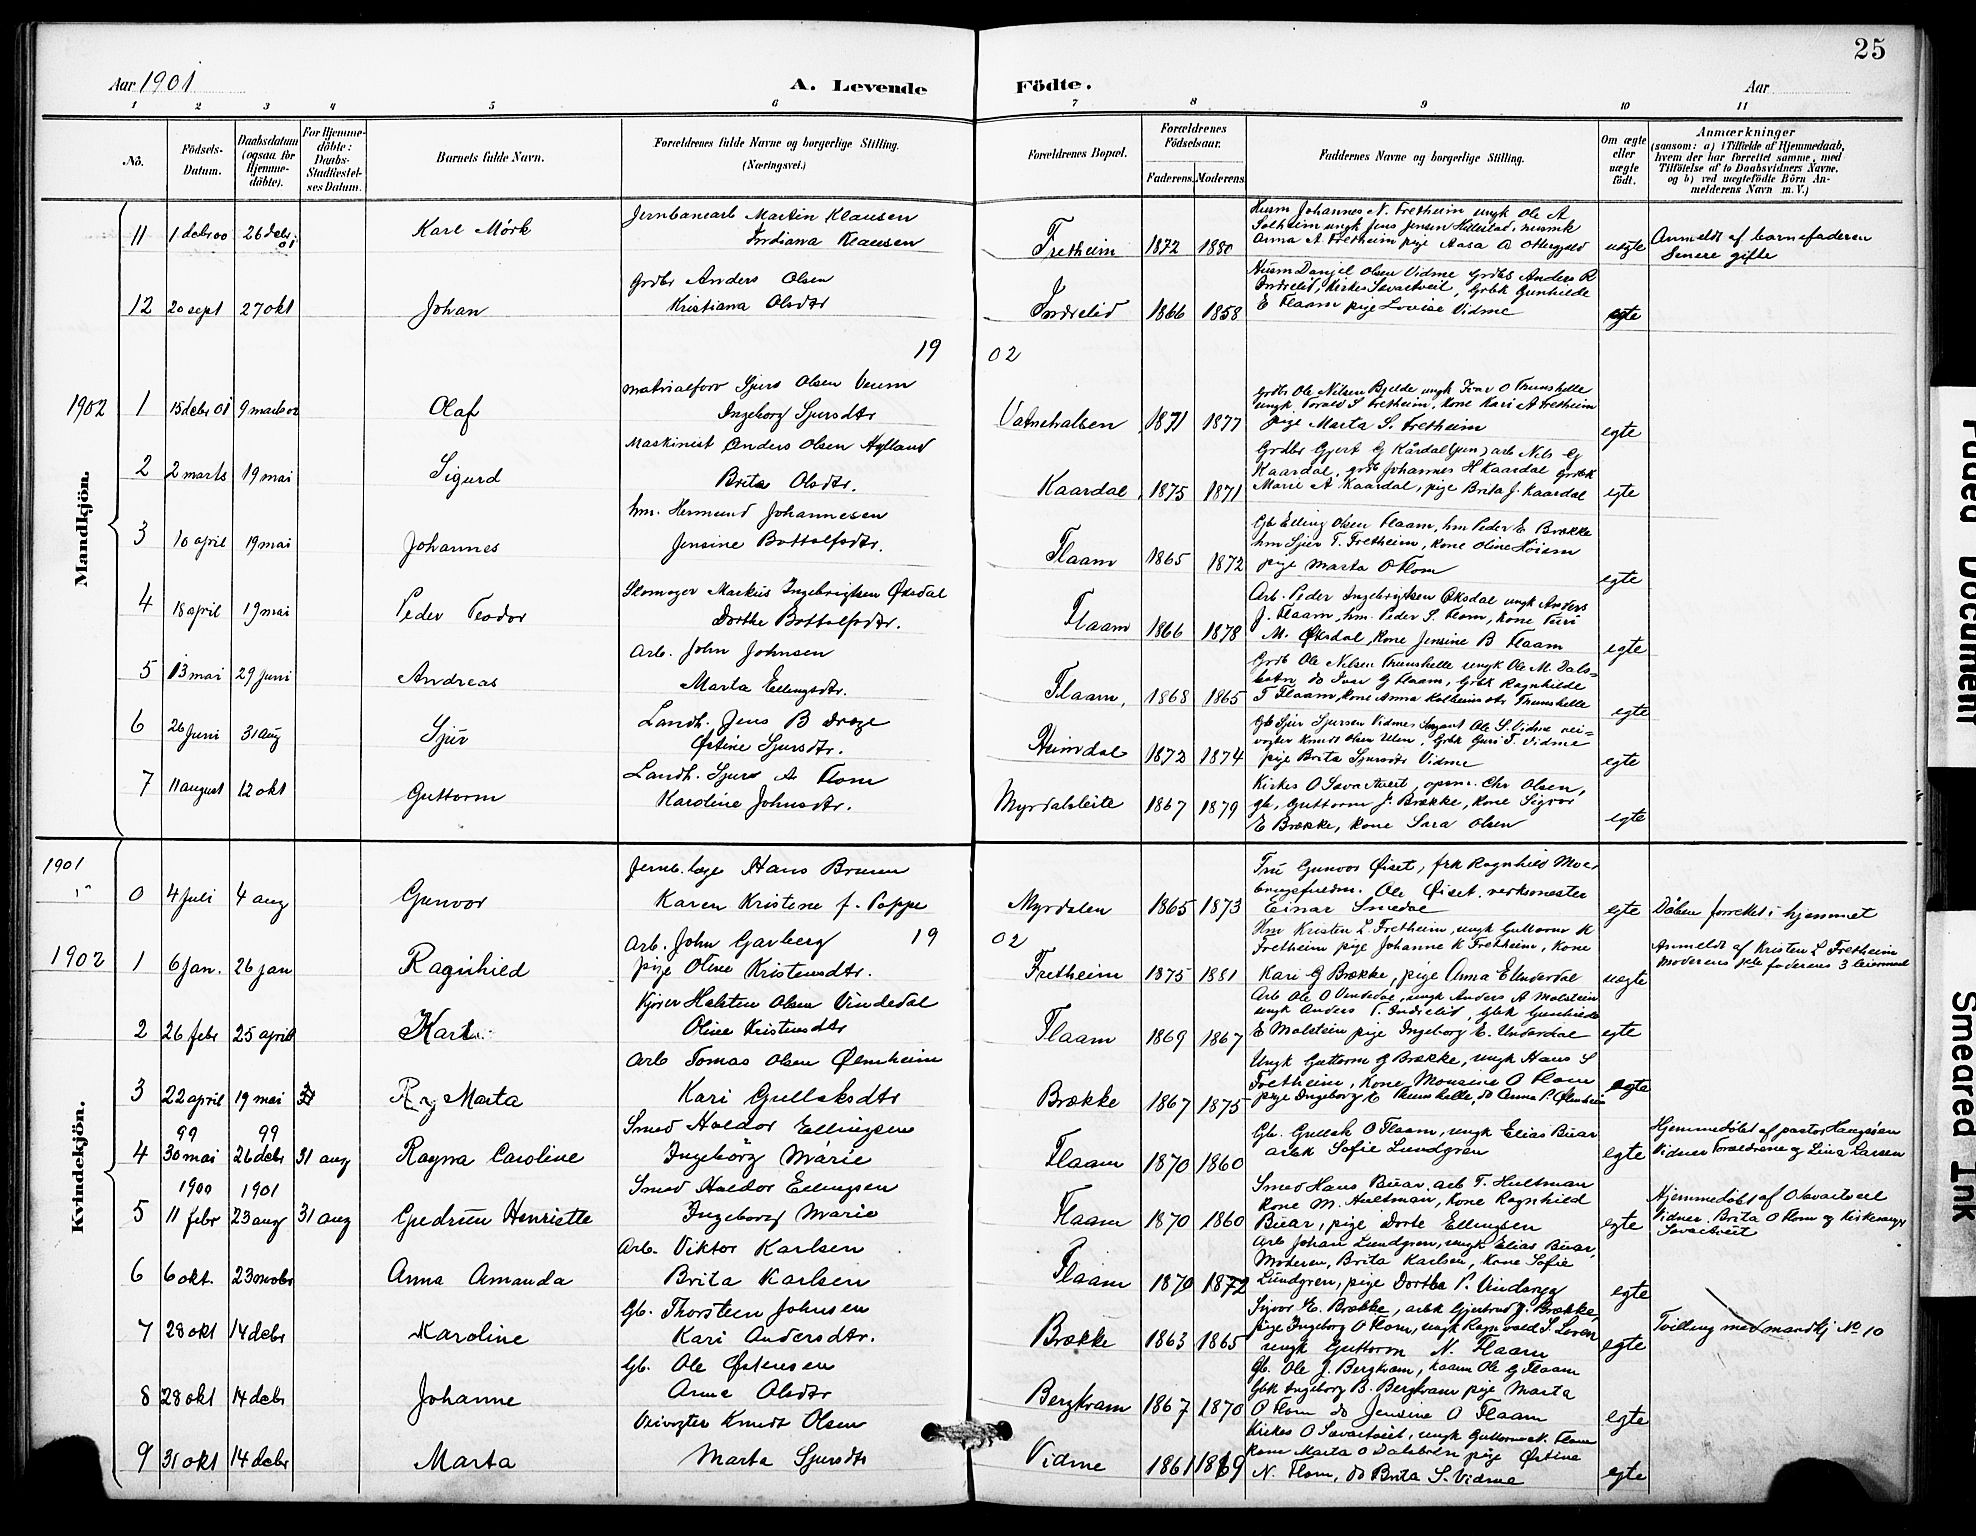 25
Aar 1901
A. Levende Födte.
Aar
1 2 3 4 5 6 7 8 9 10 11
No.
Födsels-Datum.
Daabsdatum (ogsaa for Hjemme-döbte).
For Hjemme-döbte: Daabs-Stadfæstel-ses Datum.
Barnets fulde Navn.
Forældrenes fulde Navne og borgerlige Stilling.
(Næringsvei.)
Forældrenes Bopæl.
Forældrenes Födselsaar.
Faderens. Moderens.
Faddernes Navne og borgerlige Stilling.
Om ægte eller uægte födt.
Anmærkninger
(saasom: a) i Tilfælde af Hjemmedaab,
hvem der har forrettet samme, med
Tilföielse af to Daabsvidners Navne,
og b) ved uægtefödte Börn An-
melderens Navn m. V.)
Mandkjön.
11 1 debr 00 26 debr. 01 Karl Mörk
Jernbanearb Martin Klausen
Indiana Klausen
Fretheim 1872 1880
Husm Johannes N. Fretheim ungk Ole A
Solheim ungk Jens Jensen Hillestad, husmk
Anna A Fretheim pige Aasa O Ottergjeld
uegte
Anmeldt af barnefaderen
Senere gifte
12 20 sept 27 okt Johan
Grdbr Anders Olsen
Kristiana Olsdtr
Indrelid 1866 1858
Husm Danjel Olsen Vidme Grdbs Anders R
Indrelid, Kirkes Savartveit, Grbk Gunhilde
E Flaam pige Lovise Vidme
egte
1902
19 02
1 15 debr 01 9 marts 02 Olaf
Matrialforv Sjurs Olsen Veum
Ingeborg Sjursdtr
Vatnehalsen 1871 1877
Grdbr Ole Nilsen Bjelde ungk Ivar O Trumshelle
ungk. Torald S Fretheim, Kone Kari A Fretheim
pige Marta S. Fretheim
egte
2 2 marts 19 mai Sigurd
Maskinist Anders Olsen Hylland
Brita Olsdtr.
Kaardal 1875 1871
Grdbr Gjert G Kårdal (jun) arb Nils G
Kaardal, grdb Johannes H Kaardal Grdbk
Marie A Kaardal, pige Brita J. Kaardal
egte
3 10 april 19 mai Johannes
hm. Hermund Johannesen
Jensine Bottolfsdtr.
Flaam 1865 1872
Gb Elling Olsen Flaam, hm Peder E Brække
hm Sjur T. Fretheim, Kone Oline Höiem
pige Marta O Flom
egte
4 18 april 19 mai Peder Teodor
Skomager Markus Ingebrigtsen Øksdal
Dorthe Bottolfsdtr.
Flaam 1866 1878
Arb. Peder Ingebrigtsen Øksdal ungk Anders
J. Flaam, hm. Peder S. Flom, Kone Turi
M. Øksdal, Kone Jensine B Flaam
egte
5 13 mai 29 juni Andreas
Arb. John Johnsen
Marta Ellingsdtr.
Flaam, 1868 1865
Grdb Ole Nilsen Trumshelle ungk Ole M. Dals-
botn, do Ivar G Flaam, Grbk Ragnhilde
T Flaam, Kone Anna Trumshelle
egte
6 26 juni 31 aug Sjur
Landh. Jens B
Østine Sjursdtr.
Heimdal 1872 1874
Gb Sjur Sjursen Vidme, Ole S. Vidme vei-
vogter Knudt Olsen, Grbk Guri T. Vidme
pige Brita Sjursdtr Vidme
egte
7 11 august 12 okt Guttorm
Landh. Sjurs A Flom
Karoline Johnsdtr.
Myrdalsleite 1867 1879
Kirkes O Savartveit, opsm. Chr Olsen,
gb, Guttorm J. Brække, Kone Sigvor
E Brække, Kone Sara Olsen
egte
Kvindekjön.
1901
0 4 juli 4 aug Gunvor
Jernb. læge Hans Bruun
Karen Kristine f. Poppe
Myrdalen 1865 1873
Fru Gunvor Øiset, frk Ragnhild Moe,
Ole Øiset, verksmester
Einar Smedal
egte
Dåben forrettet i hjemmet
1902
19 02
1 6 jan. 26 jan Ragnhild
Arb. John Garberg
pige Oline Kristensdtr.
Fretheim 1875 1881
Hm Kristen L Fretheim, ungk Guttorm K
Fretheim pige Johanne K Fretheim, Kone
Kari G Brække, pige Anna E Underdal
uegte
Anmeldt af Kristen L Fretheim
Moderens 1ste faderens 3 leiermaal
2 26 febr 25 april Kari
Kjører Halsten Olsen Vindedal
Oline Kristensdtr
Flaam 1869 1867
Arb Ole O Vindedal, ungk Anders A Molstein
ungk Anders T. Indrelid, Gbk Gunhilde
E Molstein pige Ingeborg E. Underdal
egte
3 22 april 19 mai Marta
Arb Tomas Olsen Ølmheim
Kari Gullaksdtr
Brække 1867 1875
Ungk Guttorm G Brække, ungk Hans S
Fretheim, Kone Monsine O Flom
pige Ingeborg E Trumshelle, do Anna P. Ølmheim
egte
99 99
4 30 mai 26 debr 31 aug Ragna Caroline
Smed Haldor Ellingsen
Ingebörg Marie
Flaam 1870 1860
Gb. Gullak O Flaam, ungk Elias Buar
arbk Sofie Lundgren
egte
Hjemmedöbt af pastor Haugsöen
Vidner Foreldrene og Lina Larsen
1900 1901
5 11 febr 23 aug 31 aug Gudrun Henriette
Smed Haldor Ellingsen
Ingeborg Marie
Flaam 1870 1860
Smed Hans Buar, arb T. Hultman
Kone M. Hultman, Kone Ragnhild
Buar, pige Dorte Ellingsen
egte
Hjemmedöbt af O Savartveit
Vidner. Brita O Flom og Kirkesanger
Savartveit
6 6 okt. 23 novbr Anna Amanda
Arb. Viktor Karlsen
Brita Karlsen
Flaam 1870 1872
Arb Johan Lundgren, ungk Elias Buar,
Moderen, Brita Karlsen, Kone Sofie
Lundgren, pige Dorthe P.
egte
7 28 okt 14 debr Karoline
Gb. Thorsteen Johnsen
Kari Andersdtr.
Brække 1863 1865
Sigvor E. Brække, arbk Gjertrud J. Brække,
pige Ingeborg O Flom, ungk Ragnvald S. Loven
ungk Guttorm N. Flaam
egte
Tvilling med mandkj No 10
8 28 okt 14 debr Johanne
Gb. Ole Østensen
Anna Olsdtr
Bergkvam 1867 1870
Gb. Ole J. Bergkvam, Ole G Flaam
Gbk Ingeborg B. Bergkvam pige Marta
O Flom do Jensine O Flaam
egte
9 31 okt 14 debr Marta
Veivogter Knudt Olsen
Marta Sjursdtr
Vidme 1861 1869
Kirkes O Savartveit, ungk Guttorm N. Flom
Kone Marta O Dalsbotn pige Østine
N. Flom, do Brita S. Vidme
egte
Faded Document
Smeared Ink